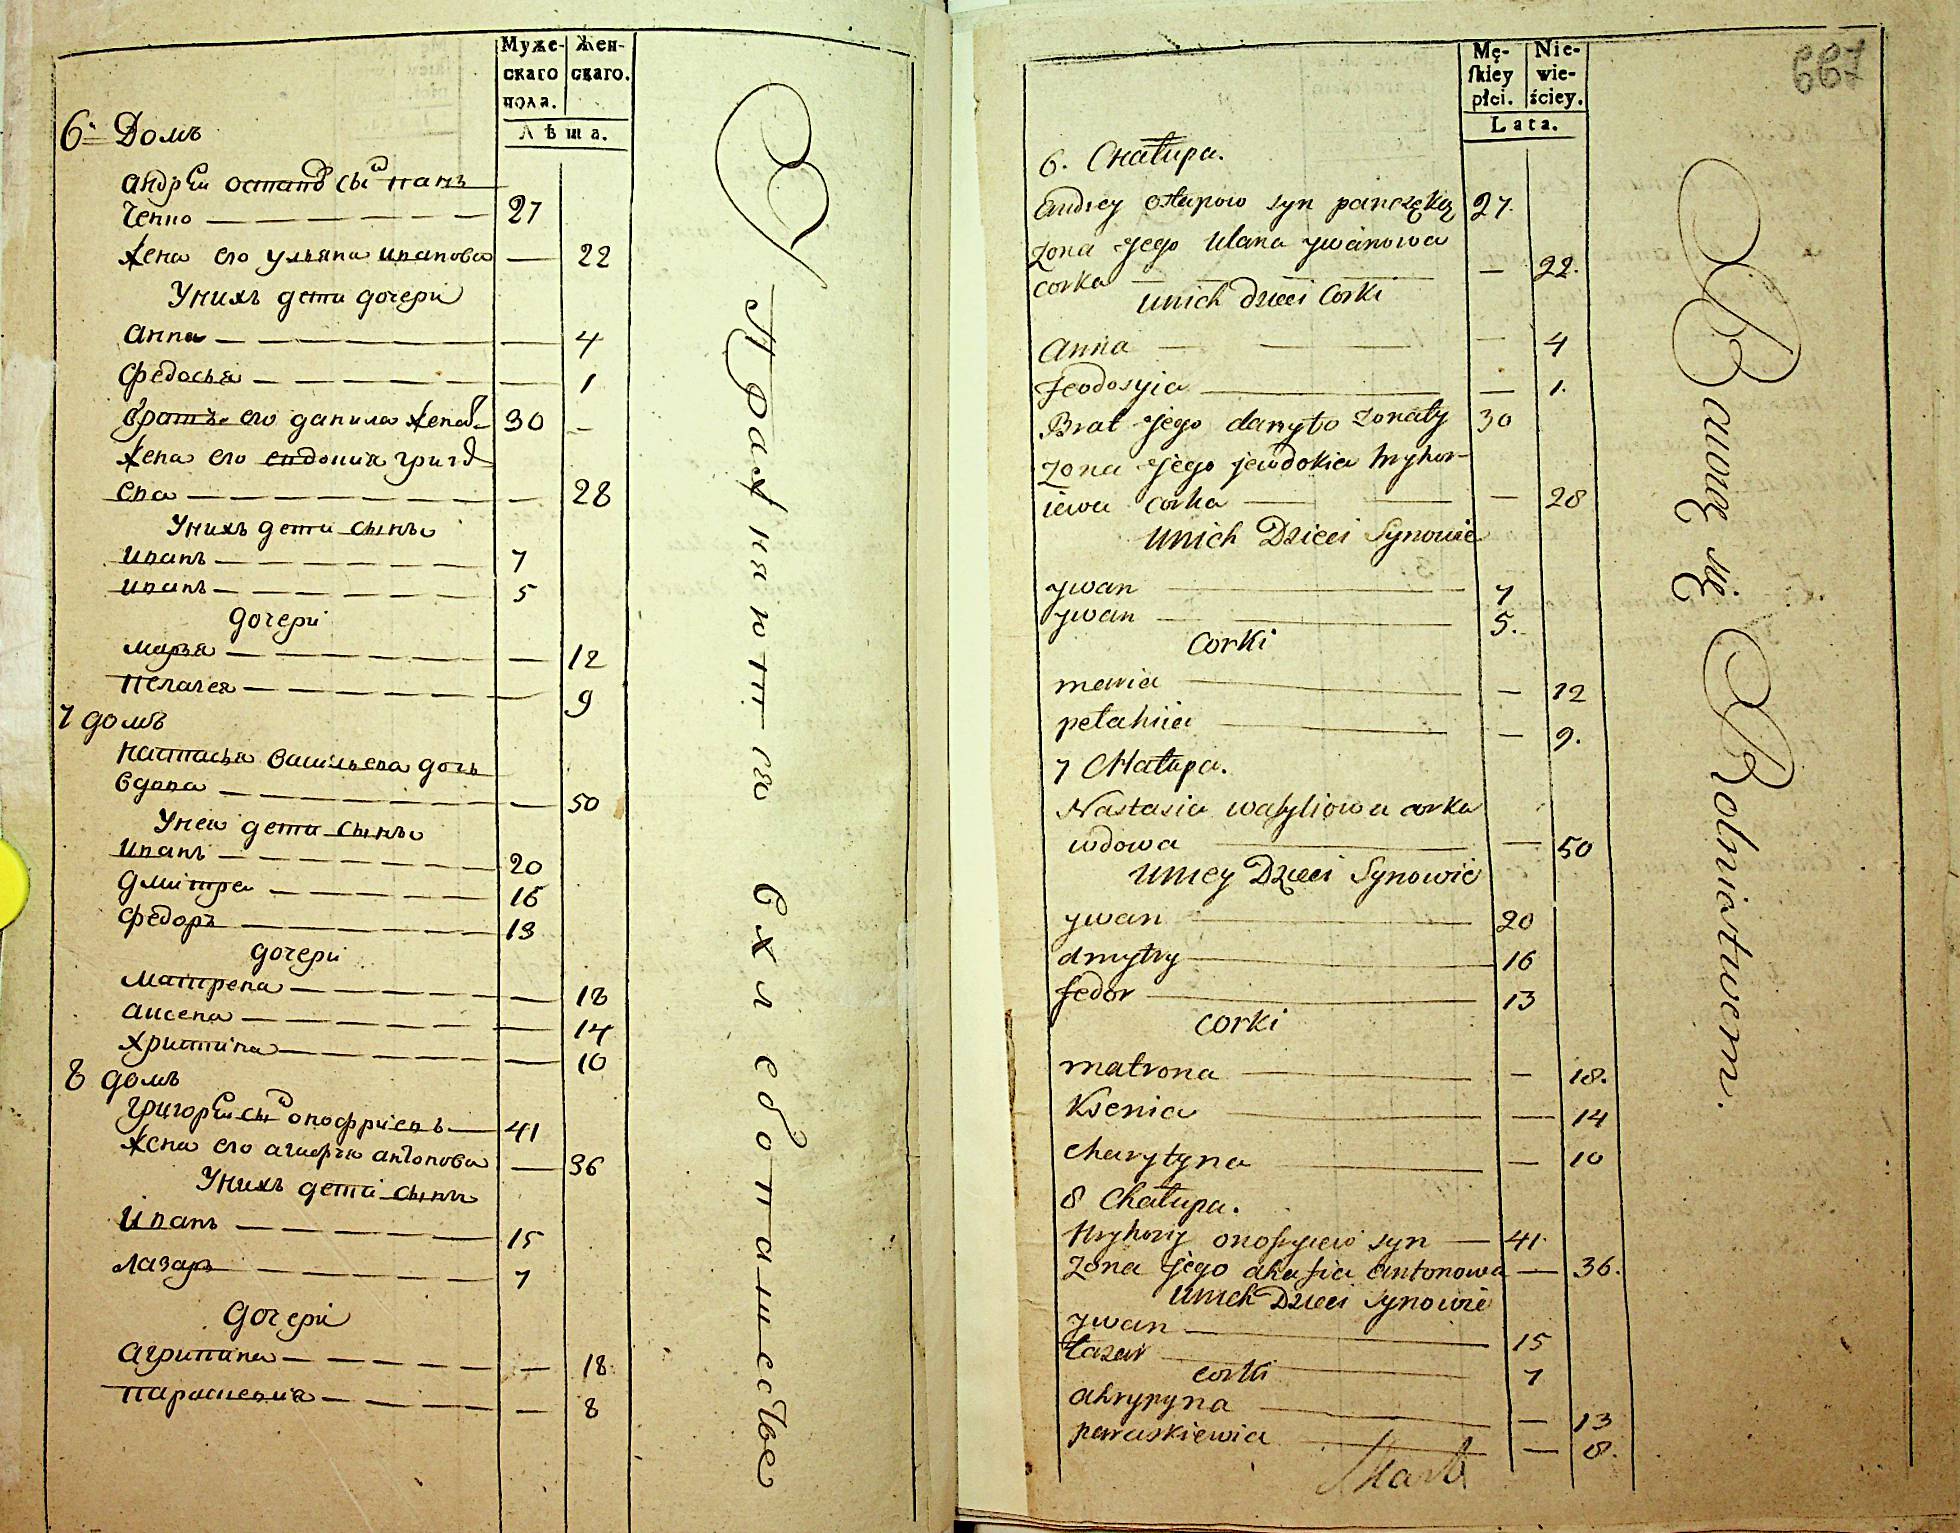 Муже-
скаго
пола.
Жен-
скаго.
Лѣта.
6й Домъ
андрей остапов сын пан
чепко 27
жена его ульяна иванова 22
Унихъ дети дочери
анна 4
федосья 1
братъ его данила женат 30
жена его евдокия григо
ева 28
Унихъ дети сынъ
иванъ 7
иванъ 5
дочери
марья 12
пелагея 9
7 домъ
настасья васильева дочь
вдова 50
Унеи дети сынъ
иванъ 20
дмитре 16
федоръ 13
дочери
матрена 18
аисена 14
христина 10
8 домъ
григорей сын онофриевъ 41
жена его агафья антонова 36
Унихъ дети сынъ
иванъ 15
лазаръ 7
дочери
агрипина 18
парасковия 8
Упражняются в хлебопашестве
667
Mę-
ſkiey
płci.
Nie-
wie-
ściey.
Lata.
6. Chałupa.
Andrey ostapow syn panczęko 27.
żona jego Ulana ywanowa
corka 22.
unich dzieci Corki
Anna 4
feodosyia 1.
Brat jego danyło żonaty 30
żona jego jewdokia hryhor-
iewa corka 28
Unich Dzieci Synowie
ywan 7
ywan 5.
Corki
maria 12
pełahiia 9.
7 Chałupa.
Nastasia wasyliowa corka
wdowa 50
Uniey Dzieci Synowie
ywan 20
dmytry 16
fedor 13
Corki
matrona 18.
Ksenia 14
charytyna 10
8 Chałupa.
Hryhory onofryiew syn 41.
żona jego ahafia antonowa 36.
Unich Dzieci Synowie
ywan 15
łazar 7
corki
ahrypyna 13
paraskiewia 8.
Bawię się Rolnictwem.